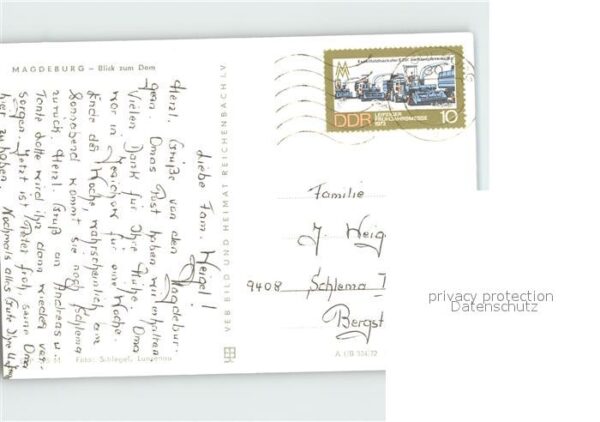 MAGDEBURG – Blick zum Dom
Liebe Fam. Weigel!
Herzl. Grüße von den Magdebur-
gern. Omas Post haben wir erhalten
Vielen Dank für Ihre Mühe. Oma
war in Jerichow für eine Woche.
Ende der Woche, wahrscheinlich am
Sonnabend kommt sie nach Schlema
zurück. Herzl. Gruß an Andreas u.
Tante Lotte wird ihn dann wieder ver-
sorgen. Jetzt ist Peter froh seine Oma
hier zu haben. Nochmals alles Gute Ihre
Foto: Schlegel, Lunzenau
VEB BILD UND HEIMAT REICHENBACH I. V.
A 1/B 324/72
DDR
LEIPZIGER
FRÜHJAHRSMESSE
1973
10
Familie
J. Weig
9408 Schlema
Bergst
privacy protection
Datenschutz